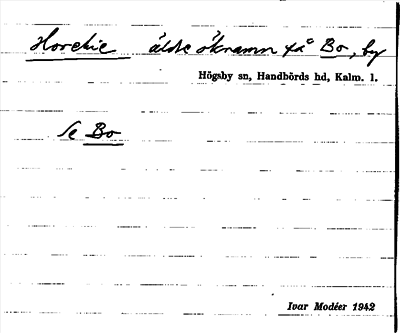 äldre öknamn på Bo, by
Högsby sn, Handbörds hd, Kalm. l.
Se Bo
Ivar Modéer 1942